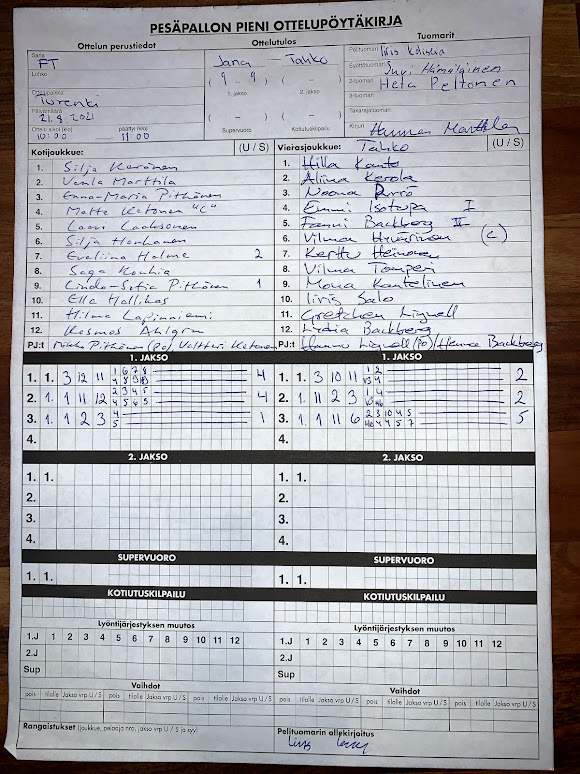 PESÄPALLON PIENI OTTELUPÖYTÄKIRJA
Ottelun perustiedot Ottelutulos Tuomarit
Sarja
FT
Jana – Tahko
Lohko
Ottelupaikka
Turenki
Päivämäärä
21.8.2021
Ottelu alkoi (klo) päättyi (klo)
10:00 11:00
( 9 – 9 ) ( – )
1. jakso 2. jakso
( – ) ( – )
Supervuoro Kotiutuskilpailu
Pelituomari Iiris
Syöttötuomari Suvi Hämäläinen
2-tuomari Heta Peltonen
3-tuomari
Takarajatuomari
Kirjuri Hanna Marttila
Kotijoukkue: (U / S)
1. Silja Keränen
2. Venla Marttila
3. Enna-Maria Pitkänen
4. Matte Ketonen "C"
5. Lauri Laaksonen
6. Silja Honkanen
7. Eveliina Halme 2
8. Saga Kouhia
9. Linda-Sofia Pitkänen 1
10. Ella Hallikas
11. Hilma Lapinniemi
12. Kosmos Ahlgren
PJ:t Pitkänen (PO), Valtteri Ketonen
Vierasjoukkue: Tahko (U / S)
1. Hilla Kanto
2. Aliina Kerola
3. Noona
4. Emmi Isotupa I
5. Fanni Backberg II
6. Vilma Hyvärinen (C)
7. Kerttu Heinonen
8. Vilma Tamper
9. Mona Kantelinen
10. Iiris Salo
11. Gretchen Lignell
12. Lydia Backberg
PJ:t Hannu Lignell (PO) / Henna Backberg
1. JAKSO 1. JAKSO
1. 1. 3 12 11 4
2. 1. 1 11 12 4
3. 1. 1 2 3 1
4.
1. 1. 3 10 11 2
2. 1. 11 2 3 2
3. 1. 1 11 6 5
4.
2. JAKSO 2. JAKSO
1. 1. 1. 1.
2. 2.
3. 3.
4. 4.
SUPERVUORO SUPERVUORO
1. 1. 1. 1.
KOTIUTUSKILPAILU KOTIUTUSKILPAILU
Lyöntijärjestyksen muutos Lyöntijärjestyksen muutos
1.J 1 2 3 4 5 6 7 8 9 10 11 12 1.J 1 2 3 4 5 6 7 8 9 10 11 12
2.J 2.J
Sup Sup
Vaihdot Vaihdot
pois tilalle Jakso vrp U / S pois tilalle Jakso vrp U / S pois tilalle Jakso vrp U / S pois tilalle Jakso vrp U / S
Rangaistukset (joukkue, pelaaja nro, jakso vrp U / S ja syy)
Pelituomarin allekirjoitus